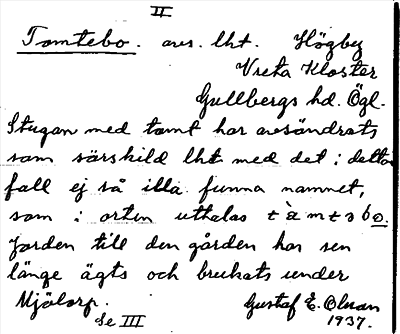 II
Tomtebo. avs. lht. Högby
Vreta Kloster
Gullbergs hd. Ögl.
Stugan med tomt har avsöndrats
som särskild lht med det i detta
fall ej så illa funna namnet,
som i orten uttalas tàmtabo.
Jorden till den gården har sen
länge ägts och brukats under
Mjölorp.
Gustaf E. Olsson
Se III
1937.